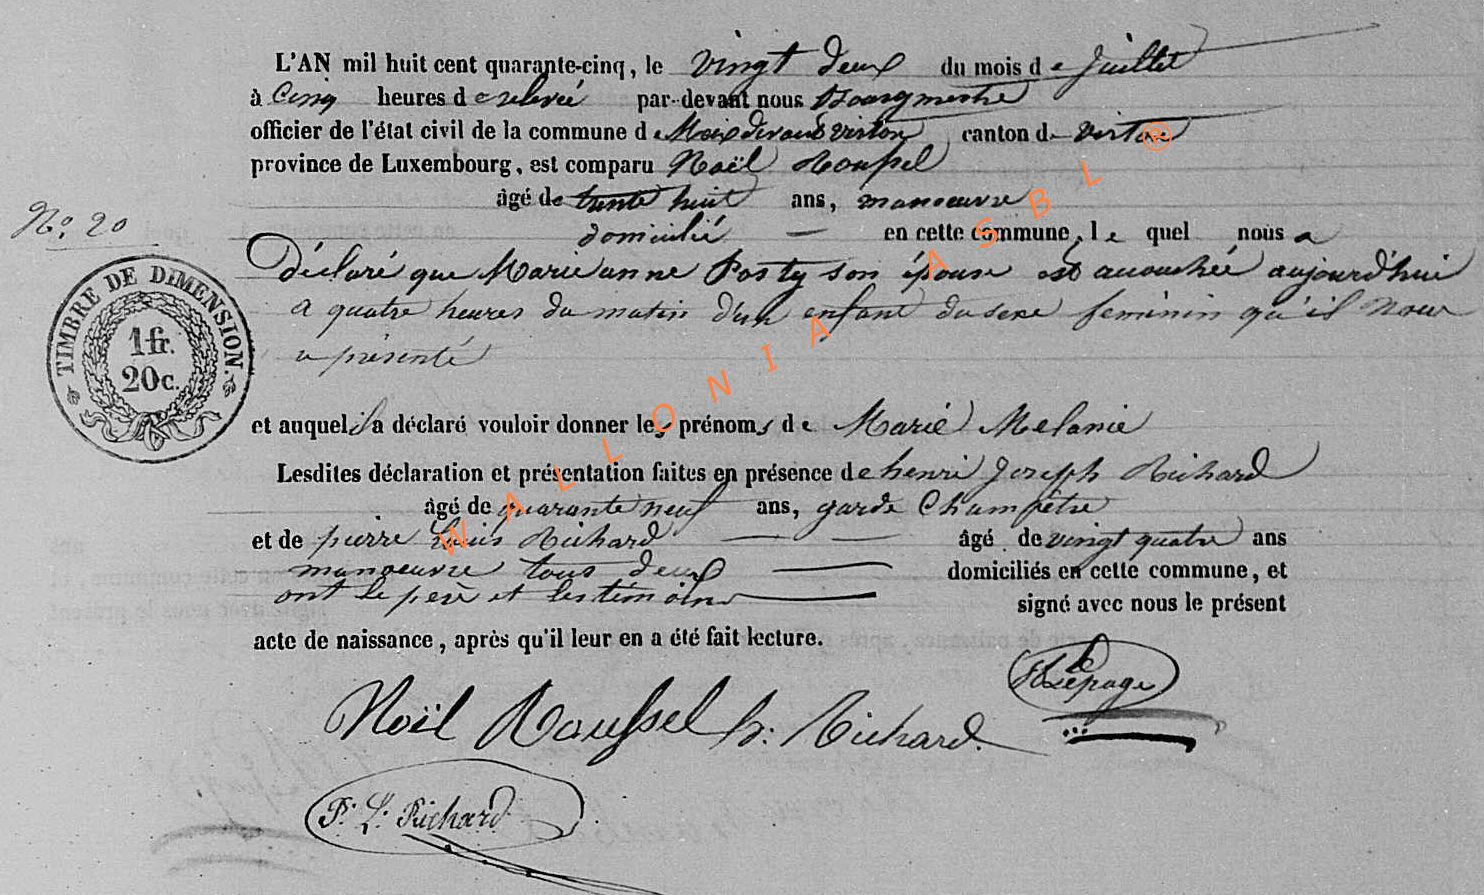 L'AN mil huit cent quarante-cinq, le vingt deux du mois de Juillet
à Cinq heures de relevée par-devant nous Bourgmestre
officier de l'état civil de la commune de Meix devant virton canton de virton
province de Luxembourg, est comparu Noël Roussel
âgé de trente huit ans, manoeuvre
N.o 20
domicilié — en cette commune, le quel nous a
Déclaré que Marie anne Posty son épouse est accouchée aujourd'hui
a quatre heures du matin d'un enfant du sexe feminin qu'il nous
a présenté
TIMBRE DE DIMENSION.
1 fr.
20 c.
et auquel il a déclaré vouloir donner les prénoms de Marie Melanie
Lesdites déclaration et présentation faites en présence de henri Joseph Richard
âgé de quarante neuf ans, garde Champêtre
et de pierre Louis Richard — — âgé de vingt quatre ans
manoeuvre tous deux — domiciliés en cette commune, et
ont le pere et les témoins — signé avec nous le présent
acte de naissance, après qu'il leur en a été fait lecture.
Lepage
Noël Roussel h: Richard.
P. L. Richard
WALLONIA ASBL ®